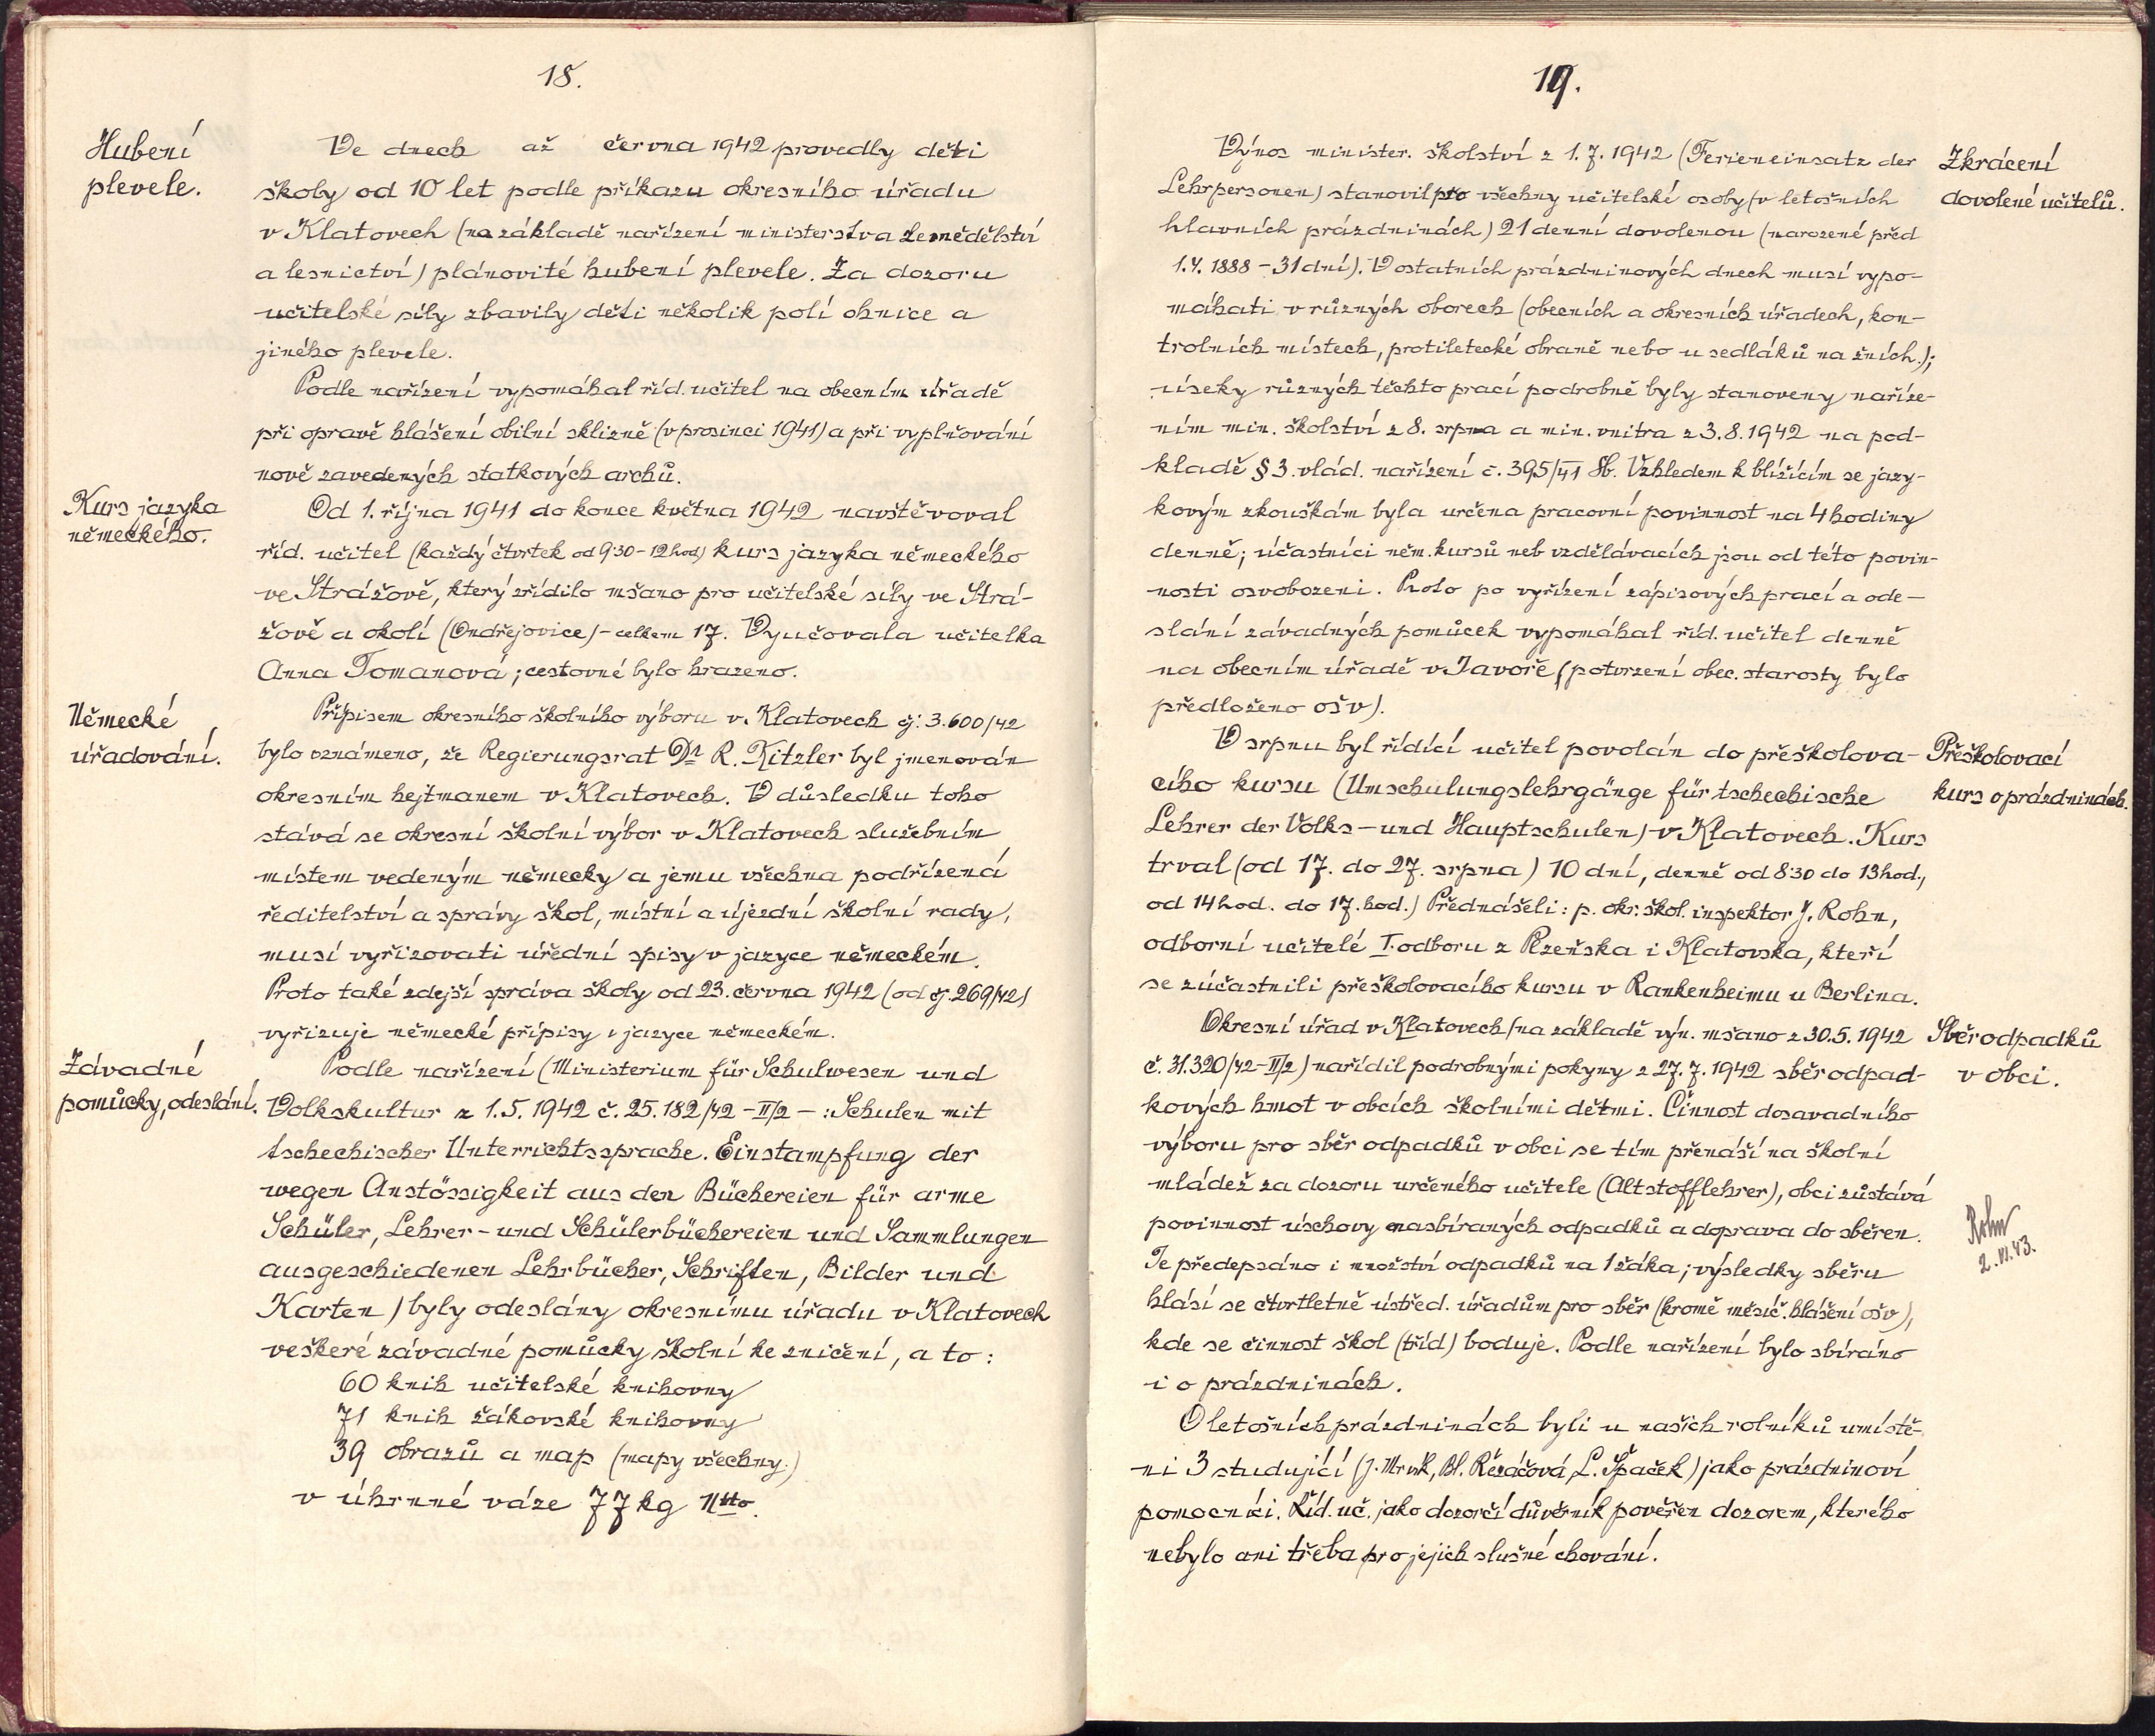 18.
Hubení
plevele.
Ve dnech až června 1942 provedly děti
školy od 10 let podle příkazu okresního úřadu
v Klatovech (na základě nařízení ministerstva zemědělství
a lesnictví) plánovité hubení plevele. Za dozoru
učitelské síly zbavily děti několik polí ohnice a
jiného plevele.
Podle nařízení vypomáhal říd. učitel na obecním úřadě
při opravě hlášení obilní sklizně (v prosinci 1941) a při vyplňování
nově zavedených statkových archů.
Kurs jazyka
německého.
Od 1. října 1941 do konce května 1942 navštěvoval
říd. učitel (každý čtvrtek od 9.30 - 12 hod) kurs jazyka německého
ve Strážově, který zřídilo mšano pro učitelské síly ve Strá-
žově a okolí (Ondřejovice) - celkem 17. Vyučovala učitelka
Anna Tomanová; cestovné bylo hrazeno.
Německé
úřadování.
Přípisem okresního školního výboru v Klatovech čj. 3.600/42
bylo oznámeno, že Regierungsrat Dr R. Kitzler byl jmenován
okresním hejtmanem v Klatovech. V důsledku toho
stává se okresní školní výbor v Klatovech služebním
místem vedeným německy a jemu všechna podřízená
ředitelství a správy škol, místní a újezdní školní rady,
musí vyřizovati úřední spisy v jazyce německém.
Proto také zdejší správa školy od 23. června 1942 (od čj. 269/42)
vyřizuje německé přípisy v jazyce německém.
Závadné
pomůcky, odeslání.
Podle nařízení (Ministerium für Schulwesen und
Volkskultur z 1.5. 1942 č. 25.182/42 - II/2 - : Schulen mit
tschechischer Unterrichtssprache. Einstampfung der
wegen Anstössigkeit aus den Büchereien für arme
Schüler, Lehrer - und Schülerbüchereien und Sammlungen
ausgeschiedenen Lehrbücher, Schriften, Bilder und
Karten) byly odeslány okresnímu úřadu v Klatovech
veškeré závadné pomůcky školní ke zničení, a to:
60 knih učitelské knihovny
71 knih žákovské knihovny
39 obrazů a map (mapy všechny.)
v úhrnné váze 77 kg Ntto.
19.
Výnos minister. školství z 1.7. 1942 (Ferieneinsatz der
Lehrpersonen) stanovil pro všechny učitelské osoby (v letošních
hlavních prázdninách) 21 denní dovolenou (narozené před
1.4. 1888 - 31 dní). V ostatních prázdninových dnech musí vypo-
máhati v různých oborech (obecních a okresních úřadech, kon-
trolních místech, protiletecké obraně nebo u sedláků na žních.);
úseky různých těchto prací podrobně byly stanoveny naříze-
ním min. školství z 8. srpna a min. vnitra z 3.8. 1942 na pod-
kladě § 3. vlád. nařízení č. 395/41 Sb. Vzhledem k blížícím se jazy-
kovým zkouškám byla určena pracovní povinnost na 4 hodiny
denně; účastníci něm. kursů neb vzdělávacích jsou od této povin-
nosti osvobozeni. Proto po vyřízení zápisových prací a ode-
slání závadných pomůcek vypomáhal říd. učitel denně
na obecním úřadě v Javoře (potvrzení obec. starosty bylo
předloženo ošv).
Zkrácení
dovolené učitelů.
V srpnu byl řídící učitel povolán do přeškolova-
cího kursu (Umschulungslehrgänge für tschechische
Lehrer der Volks - und Hauptschulen) v Klatovech. Kurs
trval (od 17. do 27. srpna) 10 dní, denně od 8.30 do 13 hod.,
od 14 hod. do 17. hod.) Přednášeli: p. okr. škol. inspektor J. Rohn,
odborní učitelé I. odboru z Plzeňska i Klatovska, kteří
se zúčastnili přeškolovacího kursu v Rankenheimu u Berlina.
Přeškolovací
kurs o prázdninách.
Okresní úřad v Klatovech (na základě výn. mšano z 30.5. 1942
č. 31.320/42 - II/2) nařídil podrobnými pokyny z 27.7. 1942 sběr odpad-
kových hmot v obcích školními dětmi. Činnost dosavadního
výboru pro sběr odpadků v obci se tím přenáší na školní
mládež za dozoru určeného učitele (Altstofflehrer), obci zůstává
povinnost úschovy nasbíraných odpadků a doprava do sběren.
Je předepsáno i množství odpadků na 1 žáka; výsledky sběru
hlásí se čtvrtletně ústřed. úřadům pro sběr (kromě měsíč. hlášení ošv),
kde se činnost škol (tříd) boduje. Podle nařízení bylo sbíráno
i o prázdninách.
Sběr odpadků
v obci.
Rohn
2.VI.43.
O letošních prázdninách byli u našich rolníků umístě-
ni 3 studující (J. Mrvík, Bl. Řezáčová, L. Špaček) jako prázdninoví
pomocníci. Říd. uč. jako dozorčí důvěrník pověřen dozorem, kterého
nebylo ani třeba pro jejich slušné chování.